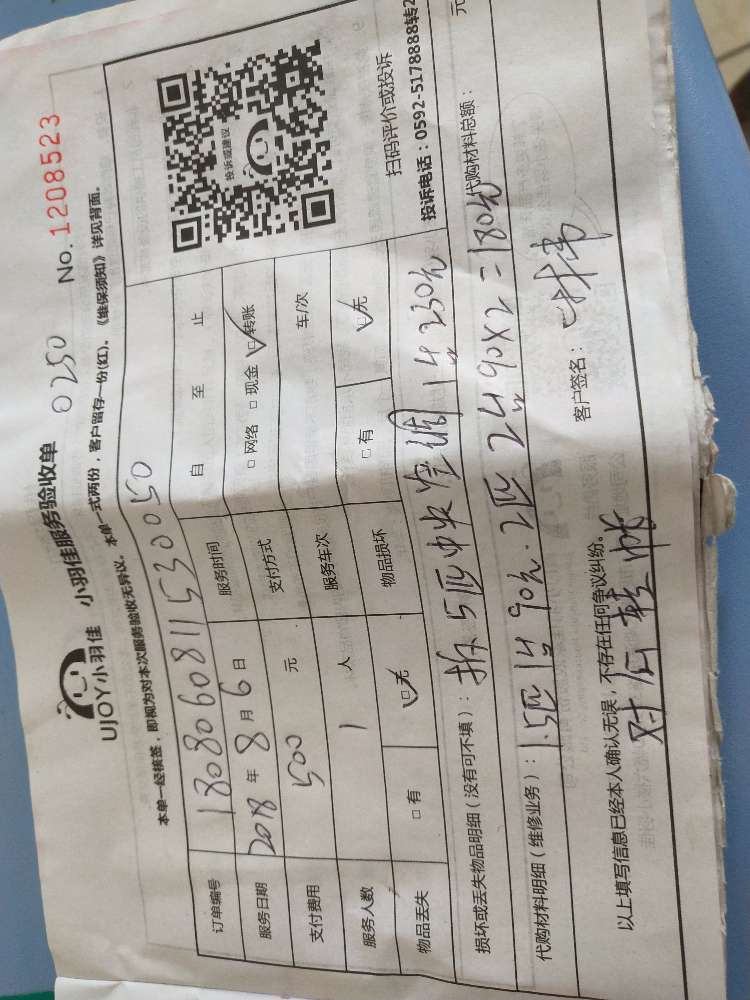 UJOY小羽佳 小羽佳服务验收单 0250 No. 1208523
本单一经核签，即视为对本次服务验收无异议。 本单一式两份，客户留存一份(红)。《维保须知》详见背面。
订单编号 1808060811530050
服务日期 2018 年 8 月 6 日 服务时间 自 至 止
支付费用 500 元 支付方式 □ 网络 □ 现金 ☑ 转账
服务人数 1 人 服务车次 车/次
物品丢失 □ 有 ☑ 无 物品损坏 □ 有 ☑ 无
投诉或建议
扫码评价或投诉
投诉电话：0592-5178888转2
损坏或丢失物品明细（没有可不填）： 拆5匹中央空调 1台 230元
代购材料明细（维修业务）： 1.5匹 1台 90元. 2匹 2台 90X2=180元 代购材料总额： 元
以上填写信息已经本人确认无误，不存在任何争议纠纷。 客户签名：
对公转帐